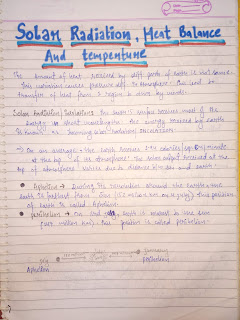 Solar Radiation, Heat Balance
And tempenture
The Amount of heat received by diff parts of earth is not same.
This variation causes pressure diff. in Atmosphere. One unit to
transfer of heat from 1 region to other by winds.
Solar Radiation : The Earth's surface receives most of its
energy in short wavelengths. The energy received by earth
is known as incoming solar radiation
→ On an average, the earth receives 1.94 calories / sq. cm / minute
at the top of its atmosphere. The solar output received at the
top of atmosphere varies due to distance b/w sun and earth.
• Aphelion → During its revolution around the earth
earth is farthest from sun (152 million km on 4 July) this position
of earth is called Aphelion.
• perihelion → On 3rd earth is nearest to the sun
(147 million km). This position is called perihelion.
Aphelion
perihelion